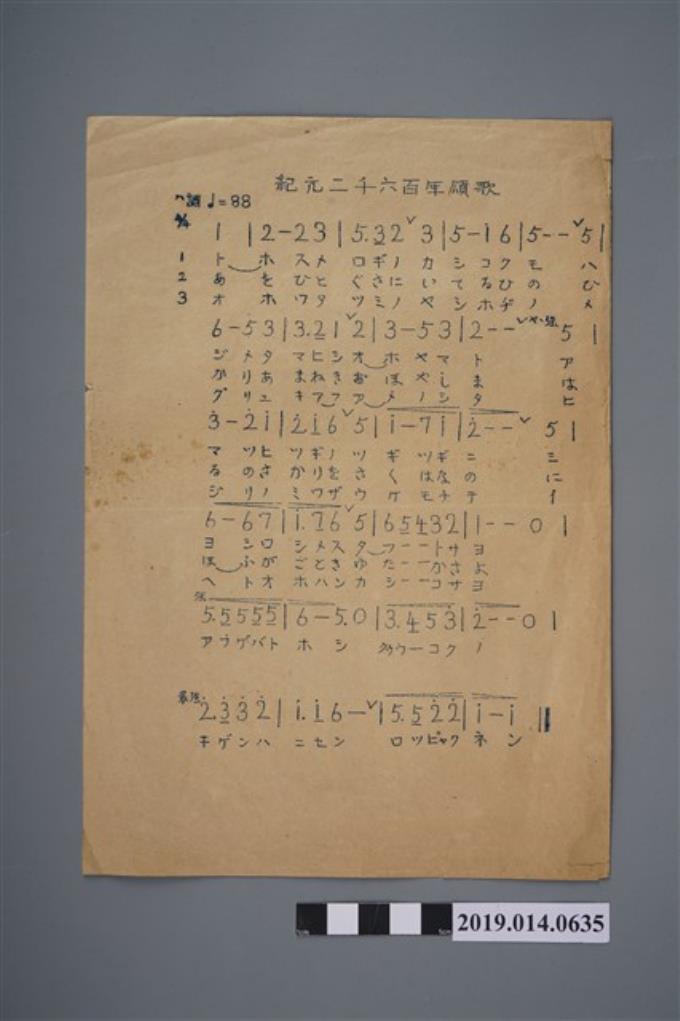 紀元二千六百年頌歌
ハ調 ♩=88
4/4
1 |2-23|5.32ˇ3|5-i6|5--ˇ5|
1 トホスメ ロギノ カ シコク モ ハ
2 あをひと ぐさに い てるひ の ひ
3 オホワタ ツミノ ヤ シホヂ ノ メ
6-53|3.21ˇ2|3-53|2--ˇ 5|
ジメタ マヒシ オ ホヤマ ト ア
かりあ まねき お ほやし ま は
グリユ キアフ ア メノシタ ヒ
3-2i|2i6ˇ5|i-7i|2--ˇ 5|
マツヒ ツギノ ツ ギツギ ニ ミ
るのさ かりを さ くはな の に
ジリノ ミワザ ウ ケモチ テ イ
6-67|i.76ˇ5|65432|1--0|
ヨシロ シメス タ フ--トサ ヨ
ほふが ごとき ゆ た--かさ よ
ヘトオ ホハンカ シ--コサ ヨ
強
5.5555|6-5.0|3.453|2--0|
アフゲバト ホシ タカウーコク ノ
最強
2.332|i.i6-ˇ|5.522|i-i‖
キゲンハ ニセン ロツピャク ネン
2019.014.0635